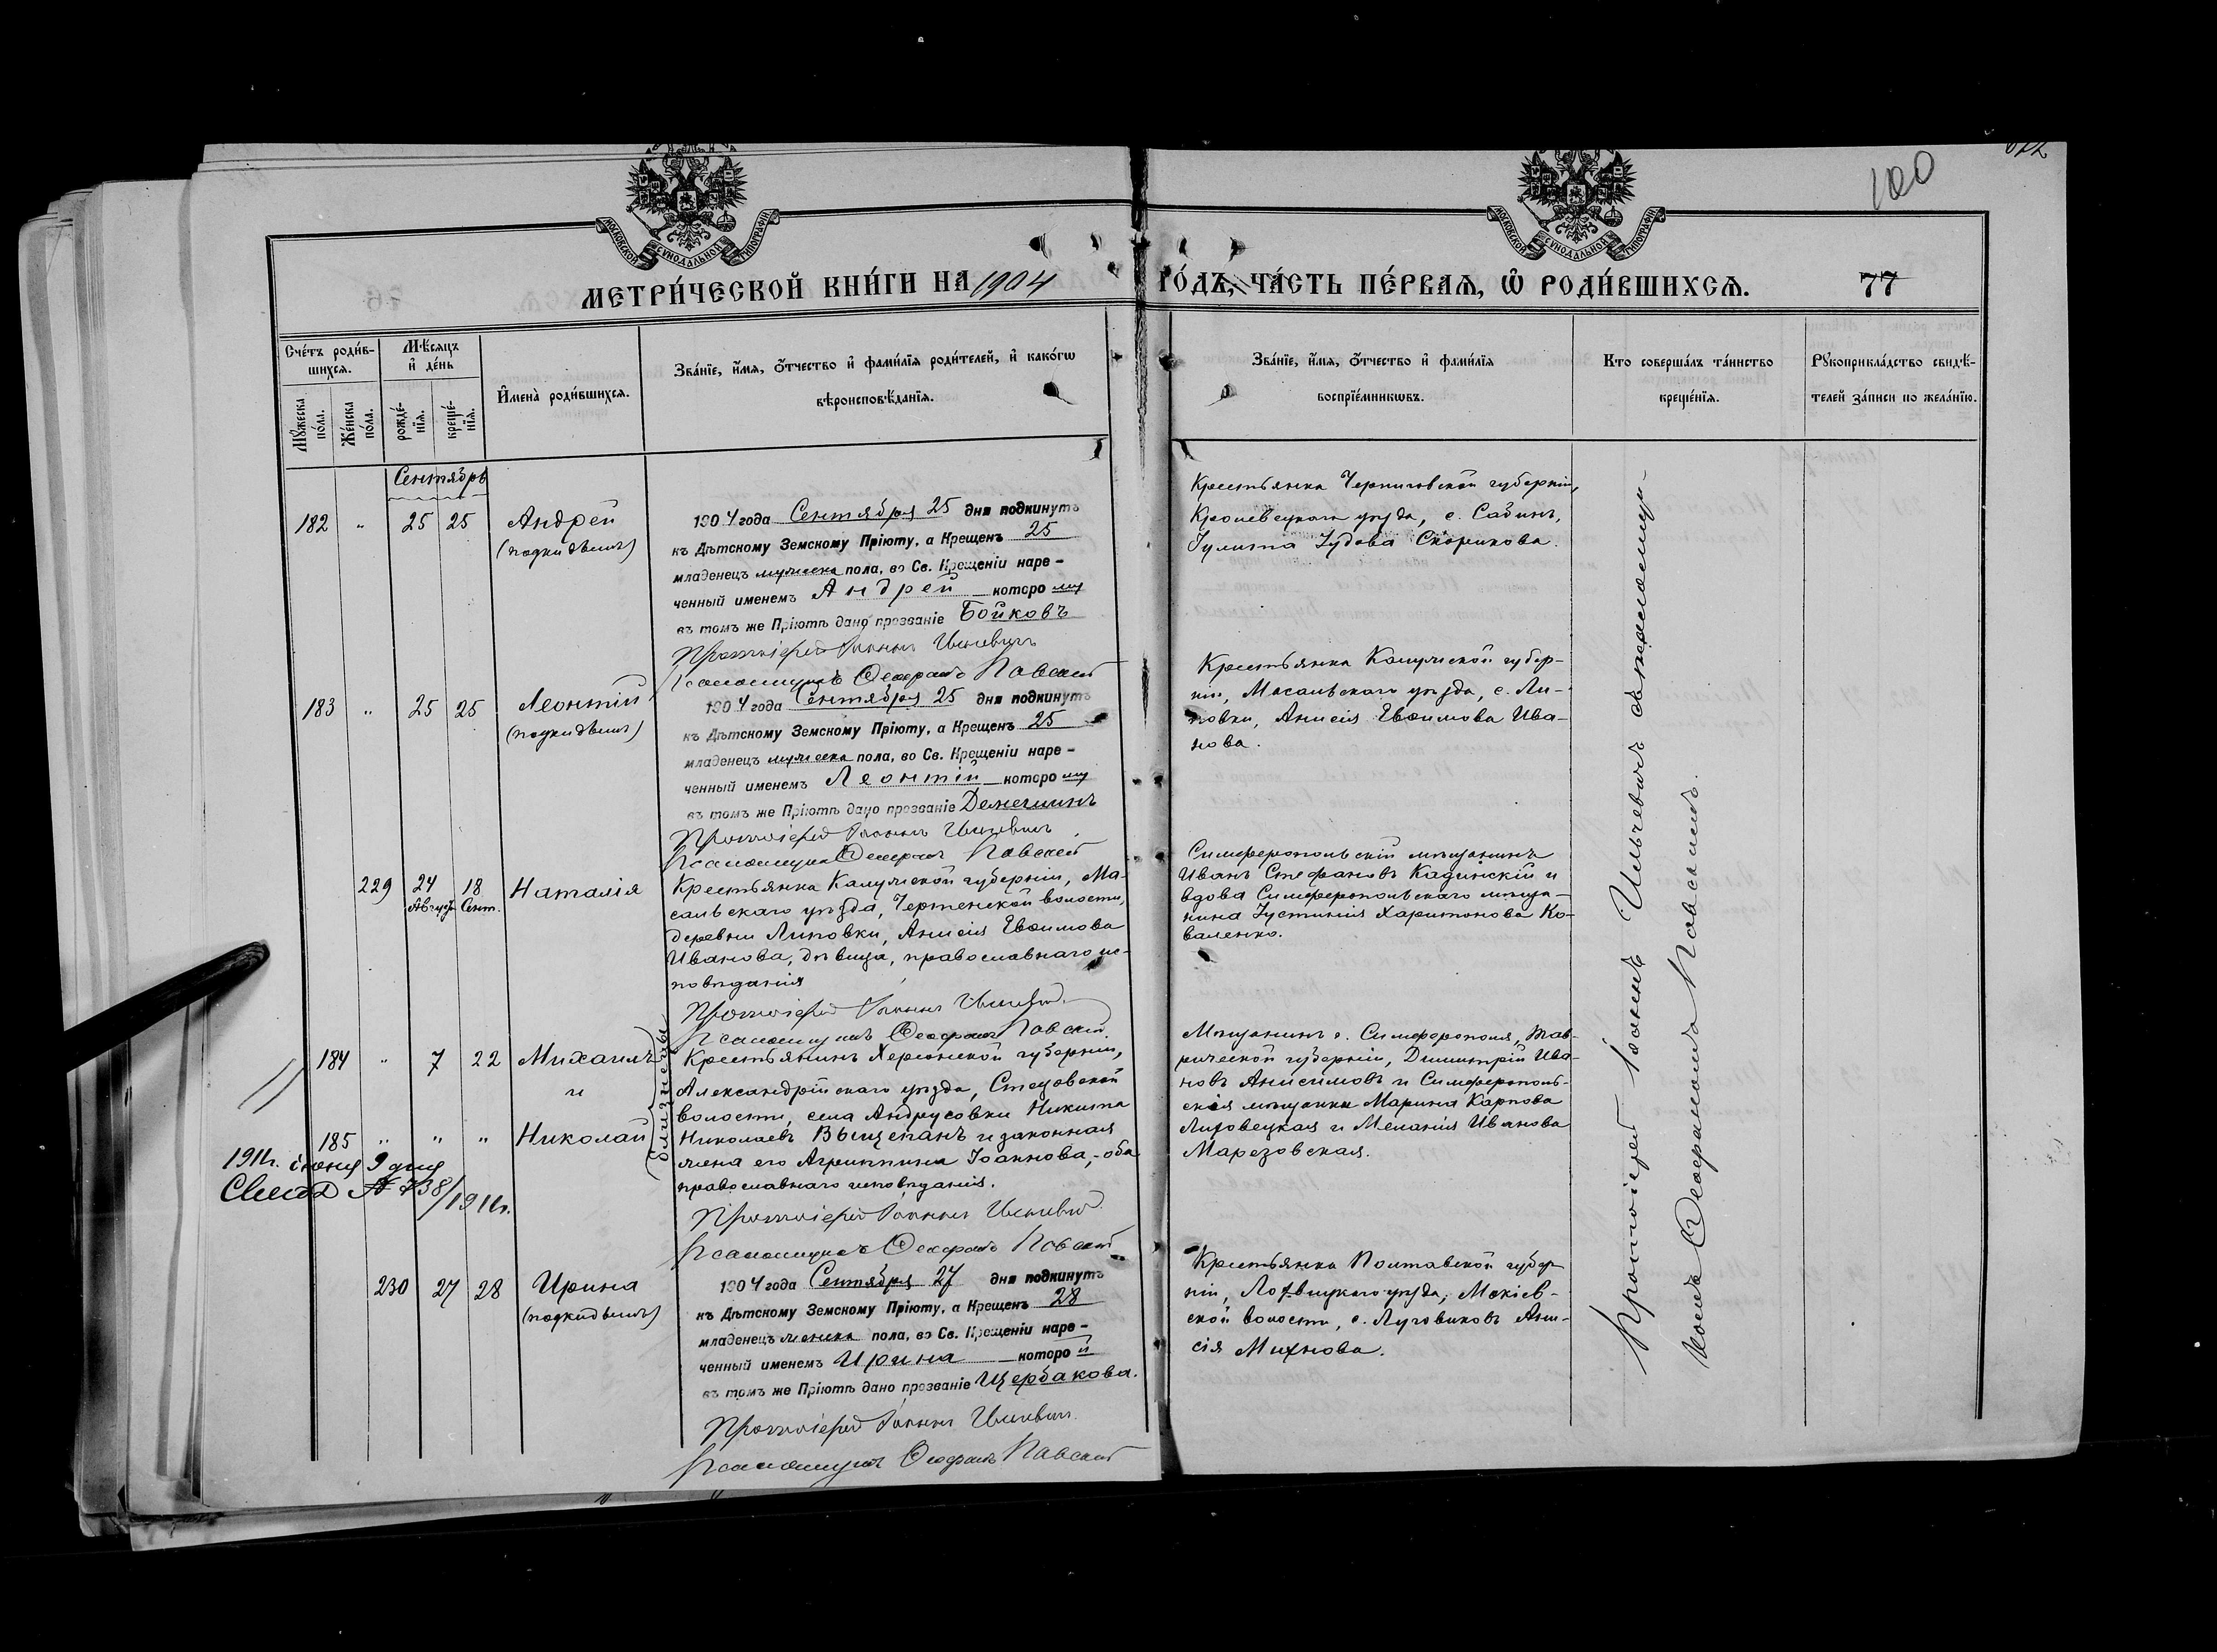 100
МОСКОВСКОЙ СѴНОДАЛЬНОЙ ТИПОГРАФІИ
МОСКОВСКОЙ СѴНОДАЛЬНОЙ ТИПОГРАФІИ
МЕТРИ́ЧЕСКОЙ КНИ́ГИ НА 1904 ГО́ДЪ, ЧА́СТЬ ПЕ́РВАѦ, Ѡ҆ РОДИ́ВШИХСѦ.
77
Сче́тъ роди́в-
шихсѧ.
Мꙋ́жеска по́ла.
Же́нска по́ла.
Мѣ́сѧцъ
и҆ де́нь
рожде́-
нїѧ.
креще́-
нїѧ.
И҆мена̀ роди́вшихсѧ.
Зва́нїе, и҆́мѧ, ѻ҆́тчество и҆ фами́лїѧ роди́телей, и҆ како́гѡ
вѣроисповѣ́данїѧ.
Зва́нїе, и҆́мѧ, ѻ҆́тчество и҆ фами́лїѧ
воспрїе́мникѡвъ.
Кто соверша́лъ та́инство
креще́нїѧ.
Рꙋкоприкла́дство свидѣ́-
телей за́писи по жела́нїю.
Сентябрь
182 " 25 25 Андрей
(подкидышъ)
1904 года Сентября 25 дня подкинутъ
къ Дѣтскому Земскому Пріюту, а Крещенъ 25
младенецъ мужеска пола, во Св. Крещеніи наре-
ченный именемъ Андрей которому
въ томъ же Пріютѣ дано прозваніе Бойковъ
Протоіерей Іоаннъ Ильчевичъ
Псаломщикъ Ѳеофанъ Павскій
Крестьянка Черниговской губерніи,
Кролевецкаго уѣзда, с. Савинъ,
Іулита Іудова Скорикова.
183 " 25 25 Леонтій
(подкидышъ)
1904 года Сентября 25 дня подкинутъ
къ Дѣтскому Земскому Пріюту, а Крещенъ 25
младенецъ мужеска пола, во Св. Крещеніи наре-
ченный именемъ Леонтій которому
въ томъ же Пріютѣ дано прозваніе
Протоіерей Іоаннъ Ильчевичъ
Псаломщикъ Ѳеофанъ Павскій
Крестьянка Калужской губер-
ніи, Масальскаго уѣзда, с. Ли-
повки, Анисія Евѳимова Ива-
нова.
229 24 Августа 18 Сент. Наталія
Крестьянка Калужской губерніи, Ма-
сальскаго уѣзда, Чертенской волости,
деревни Липовки, Анисія Евѳимова
Иванова, дѣвица, православнаго ис-
повѣданія
Протоіерей Іоаннъ Ильчевичъ
Псаломщикъ Ѳеофанъ Павскій
Симферопольскій мѣщанинъ
Иванъ Стефановъ Кадинскій и
вдова Симферопольскаго мѣща-
нина Іустинія Харитонова Ко-
валенко.
184 " 7 22 Михаилъ
и
185 " " " Николай
(близнецы)
1911г. іюня 9 дня
№ 738/1911г.
Крестьянинъ Херсонской губерніи,
Александрійскаго уѣзда, Стецовской
волости, села Андрусовки Никита
Николаевъ Выщепанъ и законная
жена его Агриппина Іоаннова, - оба
православнаго исповѣданія.
Протоіерей Іоаннъ Ильчевичъ
Псаломщикъ Ѳеофанъ Павскій
Мѣщанинъ г. Симферополя, Тав-
рической губерніи, Димитрій Ива-
новъ Анисимовъ и Симферополь-
ская мѣщанка Марина Карпова
Лиховецкая и Меланія Иванова
Марезовская.
230 27 28 Ирина
(подкидышъ)
1904 года Сентября 27 дня подкинутъ
къ Дѣтскому Земскому Пріюту, а Крещенъ 28
младенецъ женска пола, во Св. Крещеніи наре-
ченный именемъ Ирина которой
въ томъ же Пріютѣ дано прозваніе Щербакова.
Протоіерей Іоаннъ Ильчевичъ
Псаломщикъ Ѳеофанъ Павскій
Крестьянка Полтавской губер
ніи, Лохвицкаго уѣзда, Мокіев-
ской волости, с. Луговиковъ Ани-
сія Михнова.
Протоіерей Іоаннъ Ильчевичъ съ псаломщи-
комъ Ѳеофаномъ Павскимъ.